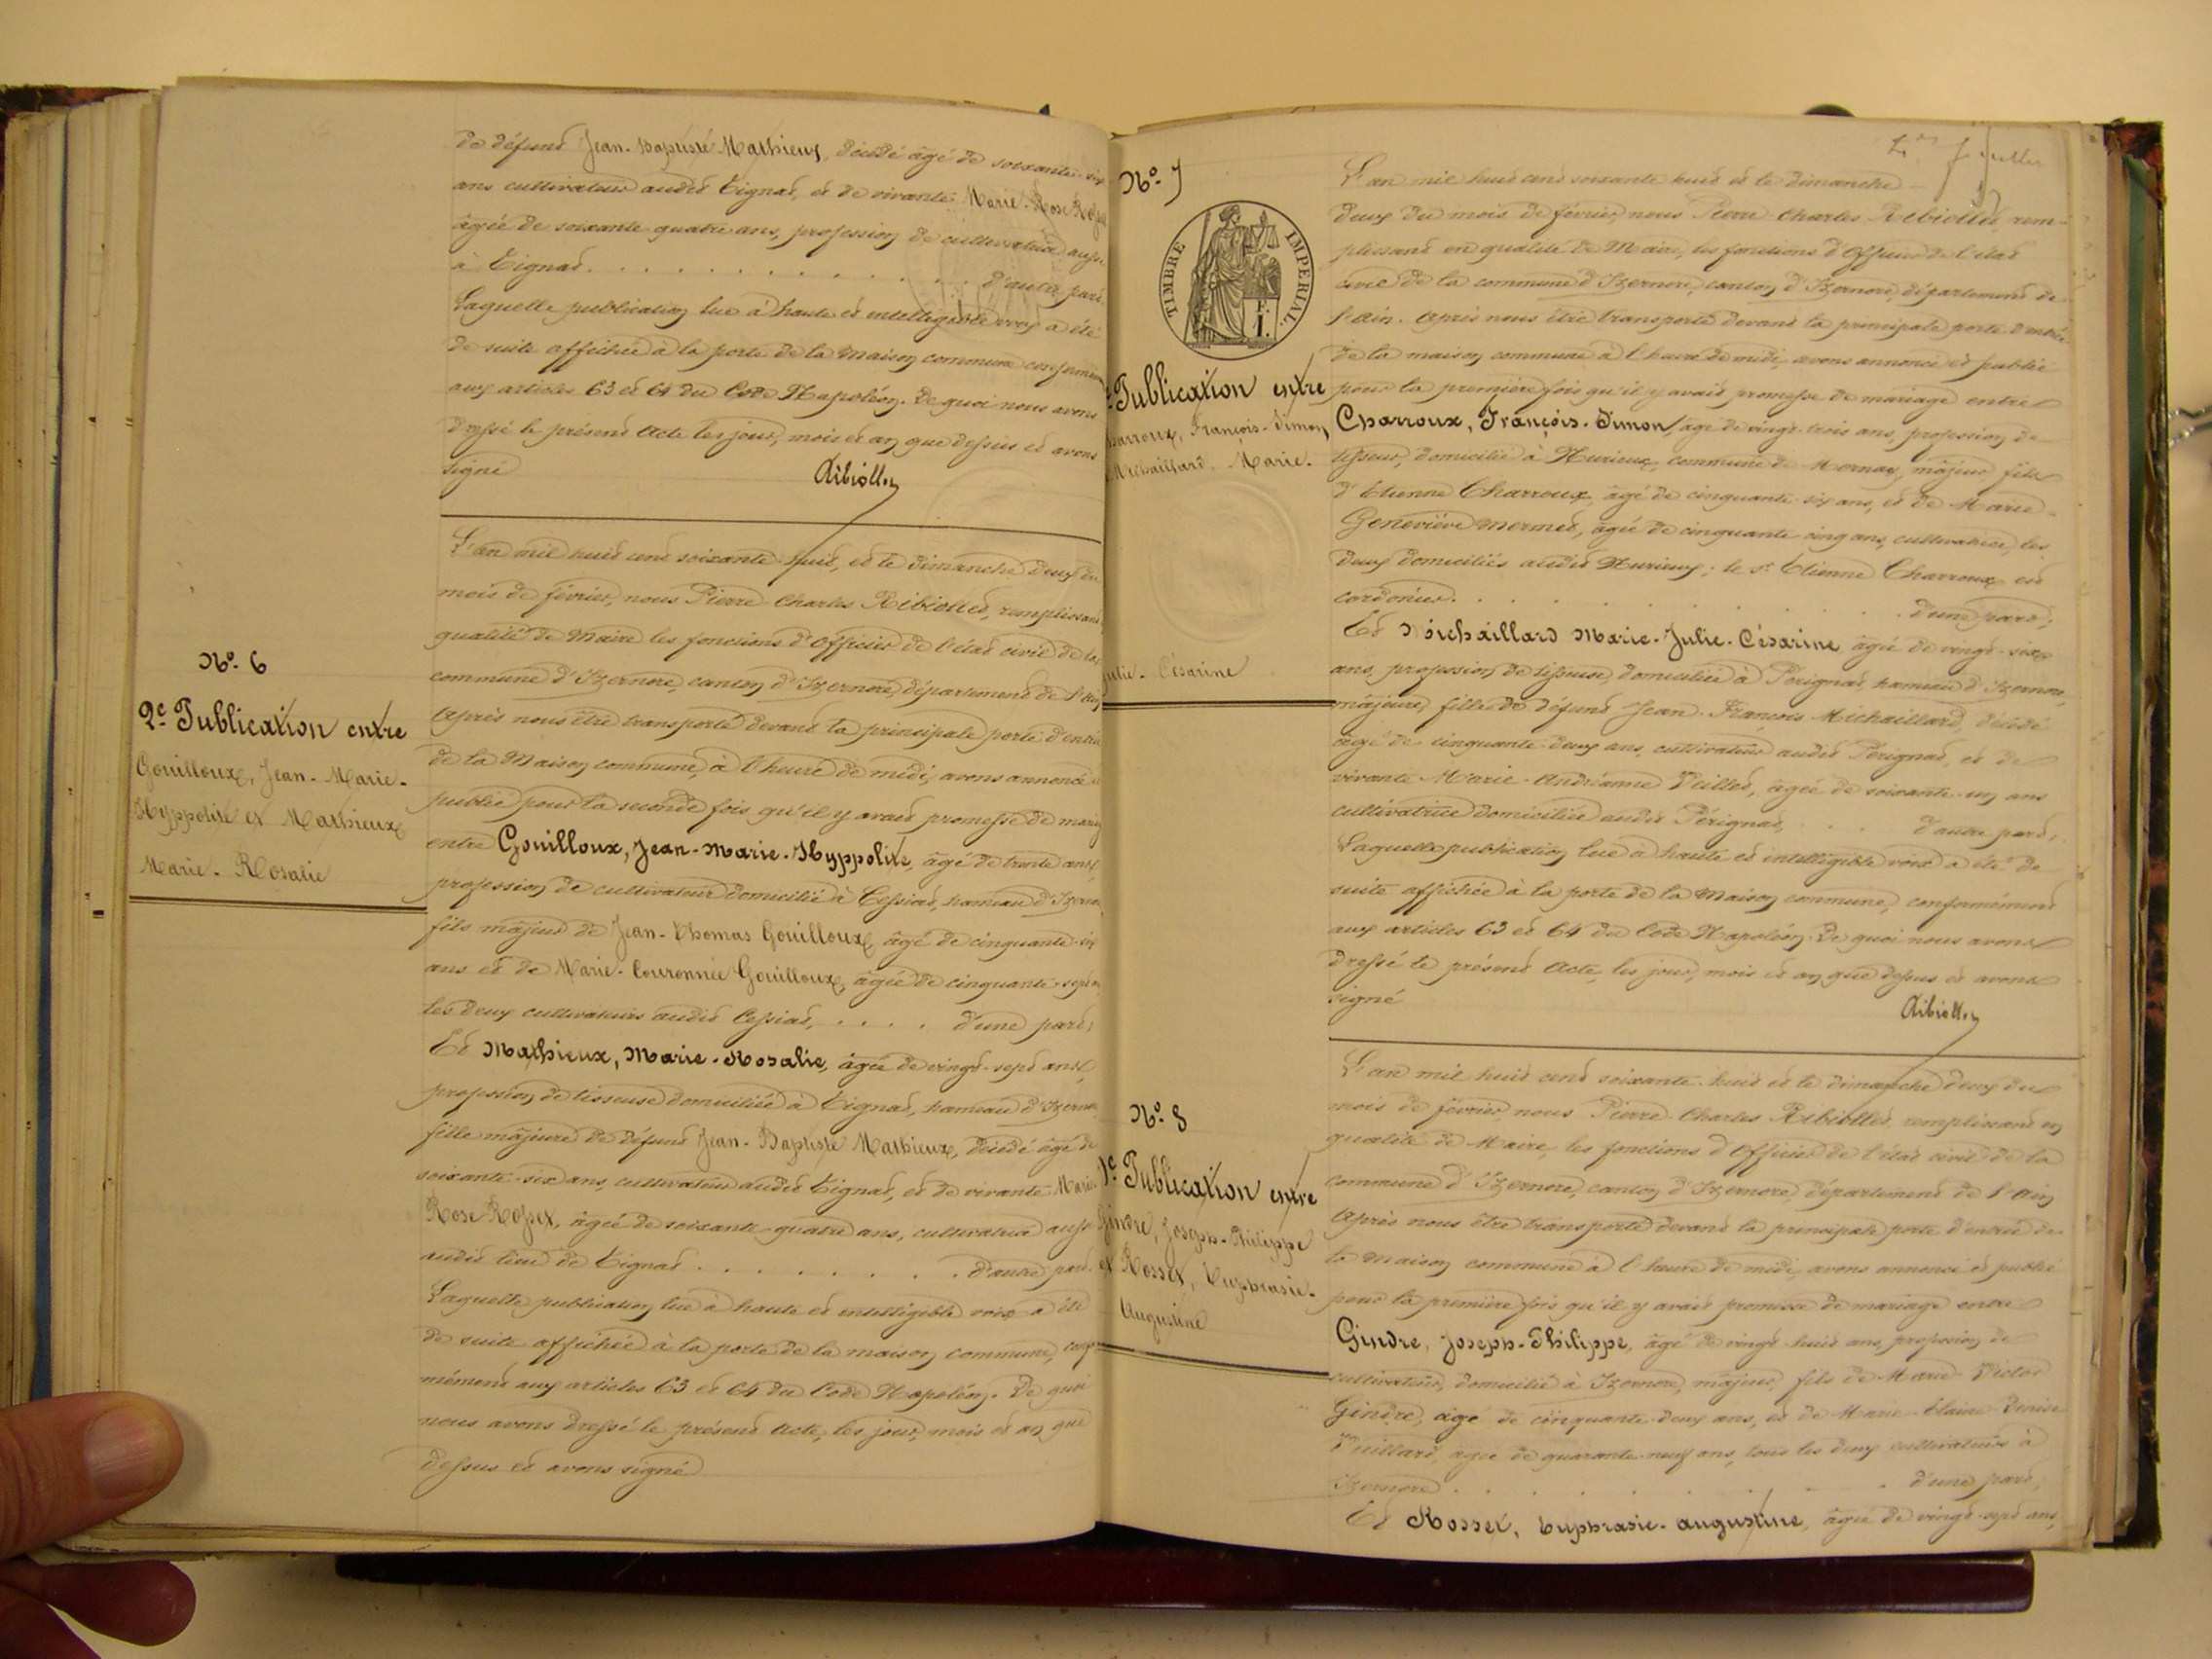 de défunt Jean-Baptiste Mathieux, décédé âgé de soixante-six
ans cultivateur audit Tignat, et de vivante Marie-Rose Rosset
âgée de soixante quatre ans, profession de cultivatrice aussi
à Tignat . . . . . . . . . . . . d'autre part.
Laquelle publication lue à haute et intelligible voix a été
de suite affichée à la porte de la maison commune conformément
aux articles 63 et 64 du Code Napoléon. De quoi nous avons
dressé le présent acte les jour, mois et an que dessus et avons
signé
Nº 6
2e Publication entre
Gouilloux, Jean-Marie-
Hyppolite et Mathieux
Marie-Rosalie
L'an mil huit cent soixante-huit, et le dimanche deux du
mois de février, nous Pierre Charles Ribiollet, remplissant
qualité de Maire les fonctions d'Officier de l'état civil de la
commune d'Izernore, canton d'Izernore, département de l'Ain
Après nous être transporté devant la principale porte d'entrée
de la Maison commune, à l'heure de midi, avons annoncé et
publié pour la seconde fois qu'il y avait promesse de mariage
entre Gouilloux, Jean-Marie-Hyppolite, âgé de trente ans,
profession de cultivateur domicilié à Cessiat, hameau d'Izernore
fils majeur de Jean-Thomas Gouilloux, âgé de cinquante-six
ans et de Marie-Couronnée Gouilloux, âgée de cinquante-sept
les deux cultivateurs audit Cessiat, . . . . d'une part;
Et Mathieux, Marie-Rosalie, âgée de vingt-sept ans,
profession de tisseuse domiciliée à Tignat, hameau d'Izernore
fille majeure de défunt Jean-Baptiste Mathieux, décédé âgé de
soixante-six ans, cultivateur audit Tignat, et de vivante Marie
Rose Rosset, âgée de soixante-quatre ans, cultivatrice aussi
audit lieu de Tignat . . . . . . . . . d'autre part.
Laquelle publication lue à haute et intelligible voix a été
de suite affichée à la porte de la maison commune, confor
mément aux articles 63 et 64 du Code Napoléon. De quoi
nous avons dressé le présent acte, les jour, mois et an que
dessus et avons signé
Nº 7
TIMBRE IMPÉRIAL.
E. I.
Publication entre
Charroux, François-Simon
Michaillard, Marie-
Julie-Césarine
L'an mil huit cent soixante huit et le dimanche
deux du mois de février, nous Pierre Charles Ribiollet, rem-
plissant en qualité de Maire, les fonctions d'Officier de l'état
civil de la commune d'Izernore, canton d'Izernore, département de
l'Ain. Après nous être transporté devant la principale porte d'entrée
de la maison commune à l'heure de midi, avons annoncé et publié
pour la première fois qu'il y avait promesse de mariage entre
Charroux, François-Simon, âgé de vingt-trois ans, profession de
tisseur, domicilié à Nurieux, commune de Mornay, majeur, fils
d'Etienne Charroux, âgé de cinquante-six ans, et de Marie
Geneviève Mermet, âgée de cinquante cinq ans, cultivatrice, les
deux domiciliés audit Nurieux; le sr Etienne Charroux est
cordonier. . . . . . . . . . . . d'une part;
Et Michaillard Marie-Julie-Césarine âgée de vingt-six
ans, profession de tisseuse, domiciliée à Pérignat, hameau d'Izernore,
majeure, fille de défunt Jean-François Michaillard, décédé
âgé de cinquante-deux ans, cultivateur audit Pérignat, et de
vivante Marie-Andréanne Veillet, âgée de soixante-un ans
cultivatrice domiciliée audit Pérignat, . . . d'autre part;
Laquelle publication lue à haute et intelligible voix a été de
suite affichée à la porte de la Maison commune, conformément
aux articles 63 et 64 du Code Napoléon. De quoi nous avons
dressé le présent acte, les jour, mois et an que dessus et avons
signé
Nº 8
1e Publication entre
Gindre, Joseph-Philippe
et Rosset, Euphrasie-
Augustine
L'an mil huit cent soixante-huit et le dimanche deux du
mois de février, nous Pierre Charles Ribiollet, remplissant en
qualité de Maire, les fonctions d'Officier de l'état civil de la
commune d'Izernore, canton d'Izernore, département de l'Ain
Après nous être transporté devant la principale porte d'entrée de
la Maison commune à l'heure de midi, avons annoncé et publié
pour la première fois qu'il y avait promesse de mariage entre
Gindre, Joseph-Philippe, âgé de vingt-huit ans, profession de
cultivateur, domicilié à Izernore, majeur, fils de Marie-Victor
Gindre, âgé de cinquante-deux ans, et de Marie-Claire
âgée de quarante-neuf ans, tous les deux cultivateurs à
Izernore . . . . . . . . d'une part,
Et Rosset, Euphrasie-Augustine, âgée de vingt-sept ans,